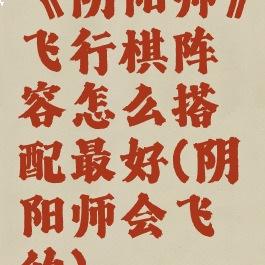 《阴阳师》
飞行棋阵
容怎么搭
配最好(阴
阳师会飞
的)